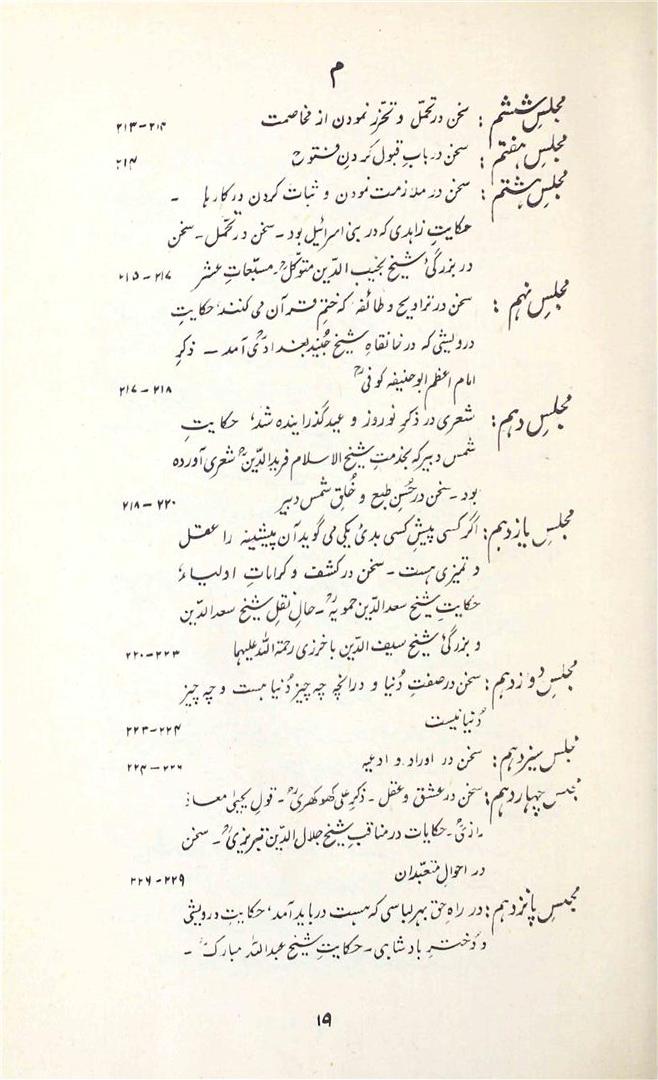 م
مجلسِ ششم : سخن در تحمّل و تحرّز نمودن از مخاصمت ۲۱۳-۲۱۴
مجلسِ ہفتم : سخن در بابِ قبول کردنِ فتوح ۲۱۴
مجلسِ ہشتم : سخن در ملازمت نمودن و ثبات کردن در کارہا -
حکایتِ زاہدی کہ در بنی اسرائیل بود - سخن در تحمّل - سخن
در بزرگیٔ شیخ نجیب الدین متوکلؒ - مسبّعاتِ عشر ۲۱۵-۲۱۷
مجلسِ نہم : سخن در تراویح و طائفہ کہ ختمِ قرآن می کنند، حکایتِ
درویشی کہ در خانقاہِ شیخ جُنید بغدادیؒ آمد - ذکرِ
امام اعظم ابو حنیفہ کوفیؒ ۲۱۷-۲۱۸
مجلسِ دہم : شعری در ذکرِ نوروز و عید گذرانیدہ شد، حکایتِ
شمس دبیر کہ بخدمتِ شیخ الاسلام فرید الدّینؒ شعری آوردہ
بود - سخن در حُسنِ طبع و خُلقِ شمس دبیر ۲۱۸-۲۲۰
مجلسِ یازدہم : اگر کسی پیشِ کسی بدیٔ یکی می گوید آن پیشینہ را عقل
و تمیزی ہست - سخن در کشف و کراماتِ اولیاء
حکایتِ شیخ سعد الدّین حمویہؒ - حالِ نقلِ شیخ سعد الدّین
و بزرگیٔ شیخ سیف الدّین باخرزی رحمۃ اللہ علیہما ۲۲۰-۲۲۳
مجلسِ دوازدہم : سخن در صفتِ دُنیا و در آنچہ چہ چیز دُنیا ہست و چہ چیز
دُنیا نیست ۲۲۳-۲۲۴
مجلسِ سیزدہم : سخن در اوراد و ادعیہ ۲۲۴-۲۲۶
مجلسِ چہاردہم : سخن در عشق و عقل - ذکرِ علی کھوکھریؒ - قولِ یحییٰ معاذ
رازیؒ - حکایات در مناقبِ شیخ جلال الدّین تبریزیؒ - سخن
در احوالِ متعبّدان ۲۲۶-۲۲۹
مجلسِ پانزدہم : در راہِ حق بہر لباسی کہ ہست درباید آمد، حکایتِ درویشی
و دُخترِ بادشاہی - حکایتِ شیخ عبداللہ مبارکؒ -
۱۹